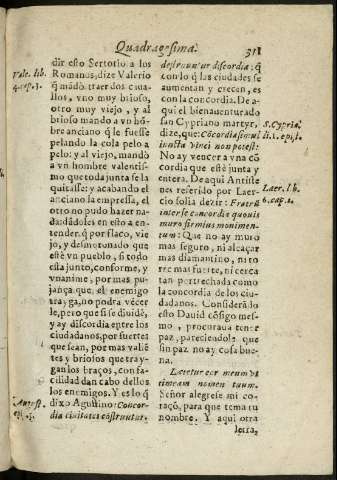 Quadragesima. 311
Vale. lib.
dir esto Sertorio a los
Romanos, dize Valerio
q̃ mãdò traer dos caua-
llos, vno muy brioso,
otro muy viejo, y al
brioso mando a vn hõ
bre anciano q̃ le fuesse
pelando la cola pelo a
pelo: y al viejo, mandò
a vn hombre valentis-
simo que toda junta se la
quitasse: y acabando el
anciano la empressa, el
otro no pudo hazer na-
da: dãdoles en esto a en-
tender, q̃ por flaco, vie-
jo, y desmoronado que
estè vn pueblo, si todo
esta junto, conforme, y
vnanime, por mas pu-
jança que el enemigo
trayga, no podra vẽcer
le, pero que si se diuidè,
y ay discordia entre los
ciudadanos, por fuertes
que sean, por mas valiẽ
tes y briosos que tray-
gan los braços, con fa-
cilidad dan cabo dellos
los enemigos. Y es lo q̃
August.
dixo Agustino: Concor-
dia ciuitates cõstruuntur,
destruuntur discordia: q̃
con lo q̃ las ciudades se
aumentan y crecen, es
con la concordia. De a-
qui el bienauenturado
san Cypriano martyr,
S. Cypria.
dize, que: Cõcordia simul
li. 1. epi. 1.
iuncta vinci non potest:
No ay vencer a vna cõ
cordia que estè junta y
entera. De aqui Antiste
nes referido por Laer-
Laer. lib.
cio solia dezir: Fratrũ
6. cap. 1.
inter se concordia quouis
muro firmius monimen-
tum: Que no ay muro
mas seguro, ni alcaçar
mas diamantino, ni to
rre mas fuerte, ni cerca
tan pertrechada como
la concordia de los ciu-
dadanos. Considerãdo
esto Dauid cõsigo mes-
mo, procuraua tener
paz, pareciendole que
sin paz no ay cosa bue-
na.
Lætetur cor meum vt
timeam nomen tuum.
Señor alegrese mi co-
raçõ, para que tema tu
nombre. Y aqui otra
letra,